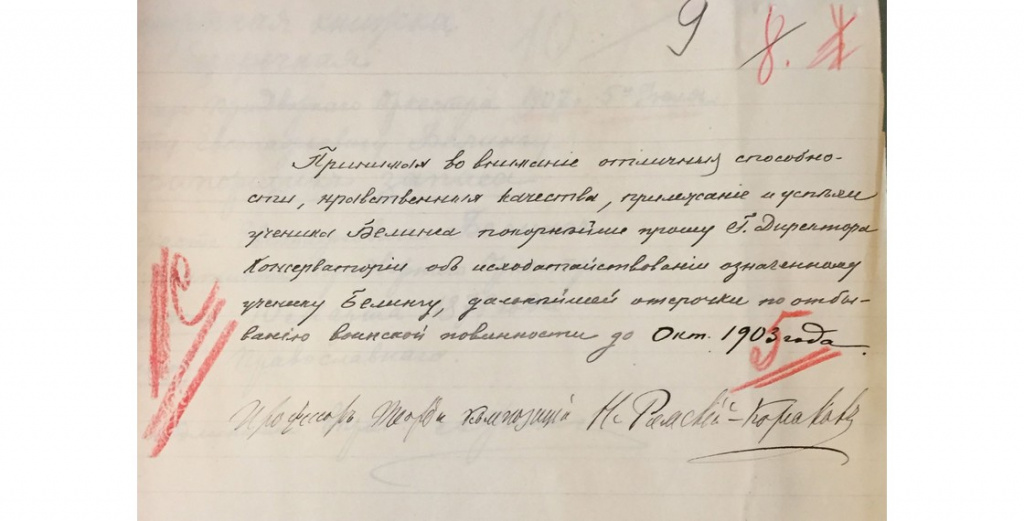 9 8.
Принимая во вниманіе отличныя способно-
сти, нравственныя качества, прилежаніе и успѣхи
ученика Белинга покорнѣйше прошу Г. Директора
Консерваторіи объ исходатайствованіи означенному
ученику Белингу, дальнѣйшей отсрочки по отбы-
ванію воинской повинности до Окт. 1903 года.
5
Профессоръ Теоріи композиціи Н. Римскій-Корсаковъ